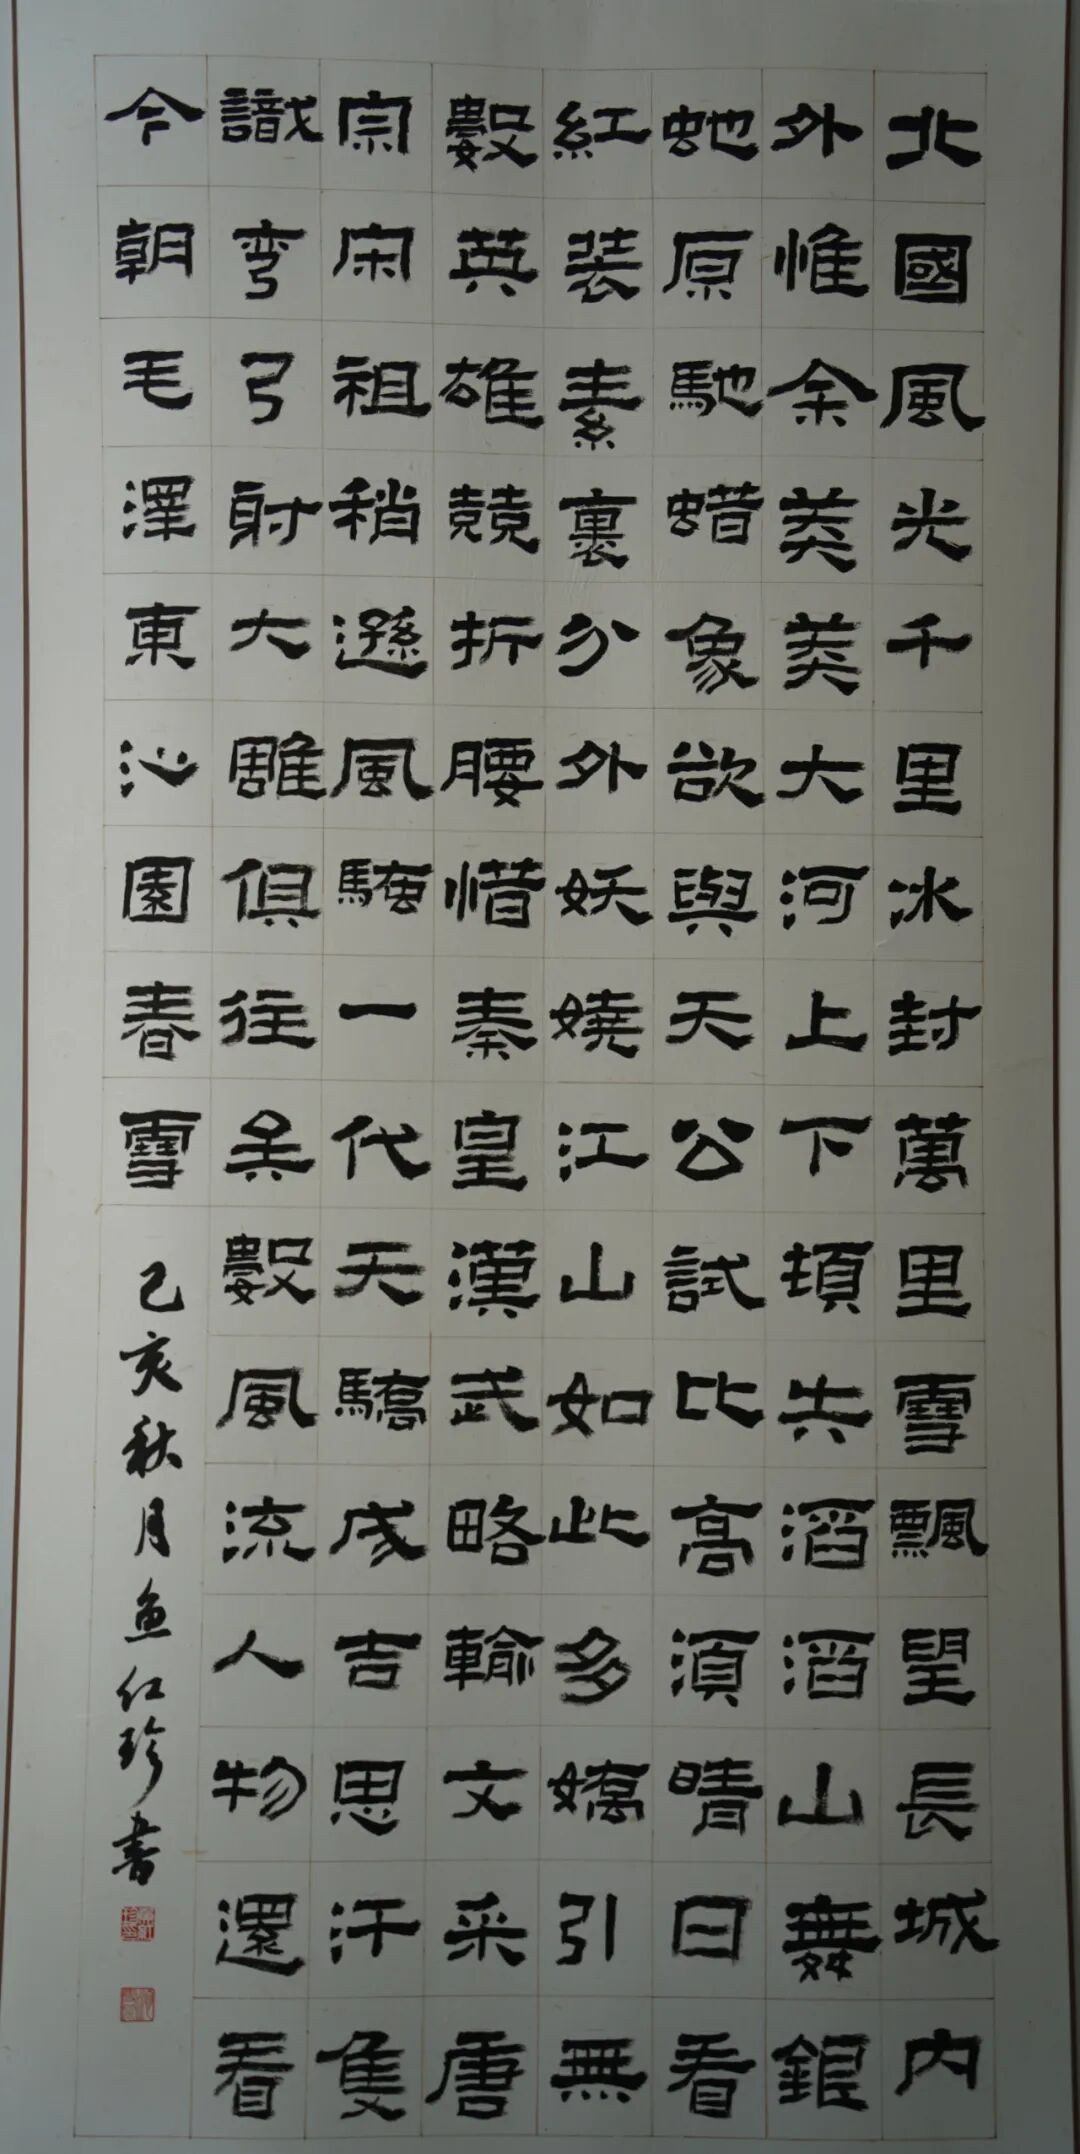 北國風光千里冰封萬里雪飄望長城內
外惟余莽莽大河上下頓失滔滔山舞銀
蛇原馳蜡象欲與天公試比高須晴日看
紅裝素裹分外妖嬈江山如此多嬌引無
數英雄競折腰惜秦皇漢武略輸文采唐
宗宋祖稍遜風騷一代天驕成吉思汗隻
識彎弓射大雕俱往矣數風流人物還看
今朝毛澤東沁園春雪
己亥秋月鱼仁珍書